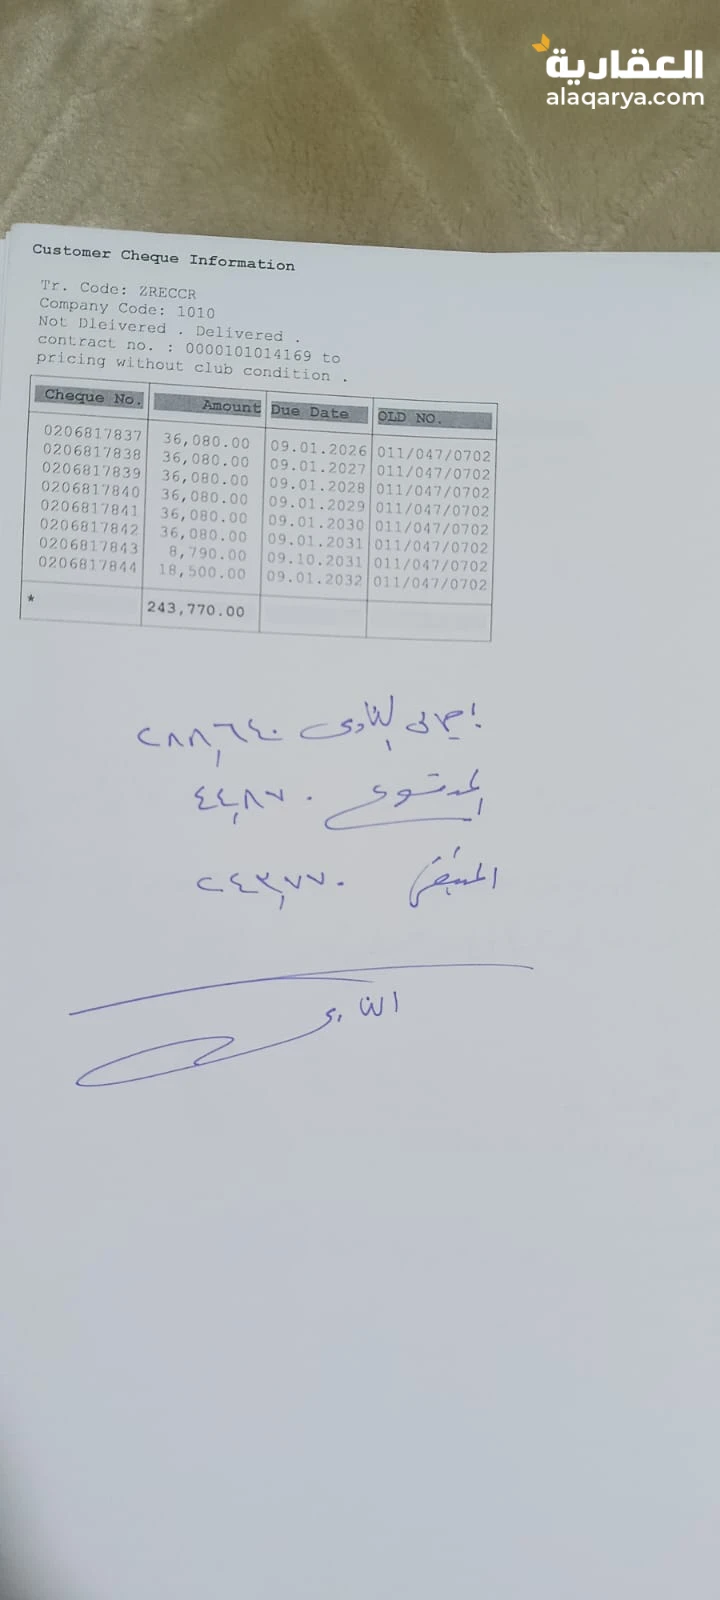 العقارية
alaqarya.com
Customer Cheque Information
Tr. Code: ZRECCR
Company Code: 1010
Not Dleivered . Delivered .
contract no. : 0000101014169 to
pricing without club condition .
Cheque No. Amount Due Date OLD NO.
0206817837 36,080.00 09.01.2026 011/047/0702
0206817838 36,080.00 09.01.2027 011/047/0702
0206817839 36,080.00 09.01.2028 011/047/0702
0206817840 36,080.00 09.01.2029 011/047/0702
0206817841 36,080.00 09.01.2030 011/047/0702
0206817842 36,080.00 09.01.2031 011/047/0702
0206817843 8,790.00 09.10.2031 011/047/0702
0206817844 18,500.00 09.01.2032 011/047/0702
* 243,770.00
إجمالى النادى ٢٨٨,٦٤٠
المدفوع ٤٤,٨٧٠
المتبقى ٢٤٣,٧٧٠
النادى